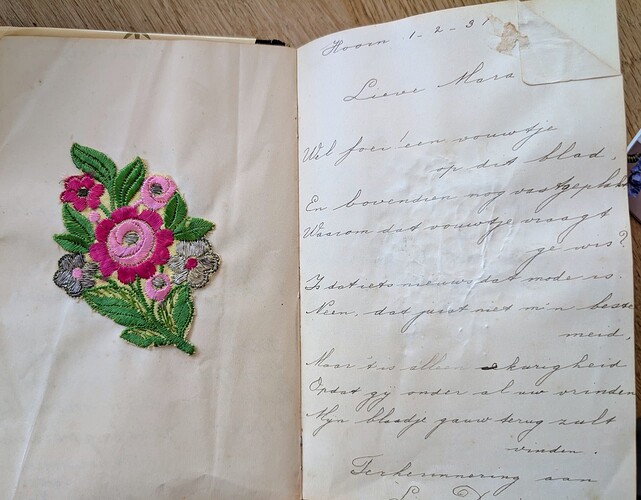 Hoorn 1-2-31
Lieve Mara
Wel foei! een vouwtje
op dit blad,
En bovendien nog vastgeplakt
Waarom dat vouwtje vraagt
ge wis?
Is dat iets nieuws dat mode is.
Neen, dat juist niet m'n beste
meid,
Maar 't is alleen
Opdat gij onder al uw vrinden
Mijn blaadje gauw terug zult
vinden.
Ter herinnering aan